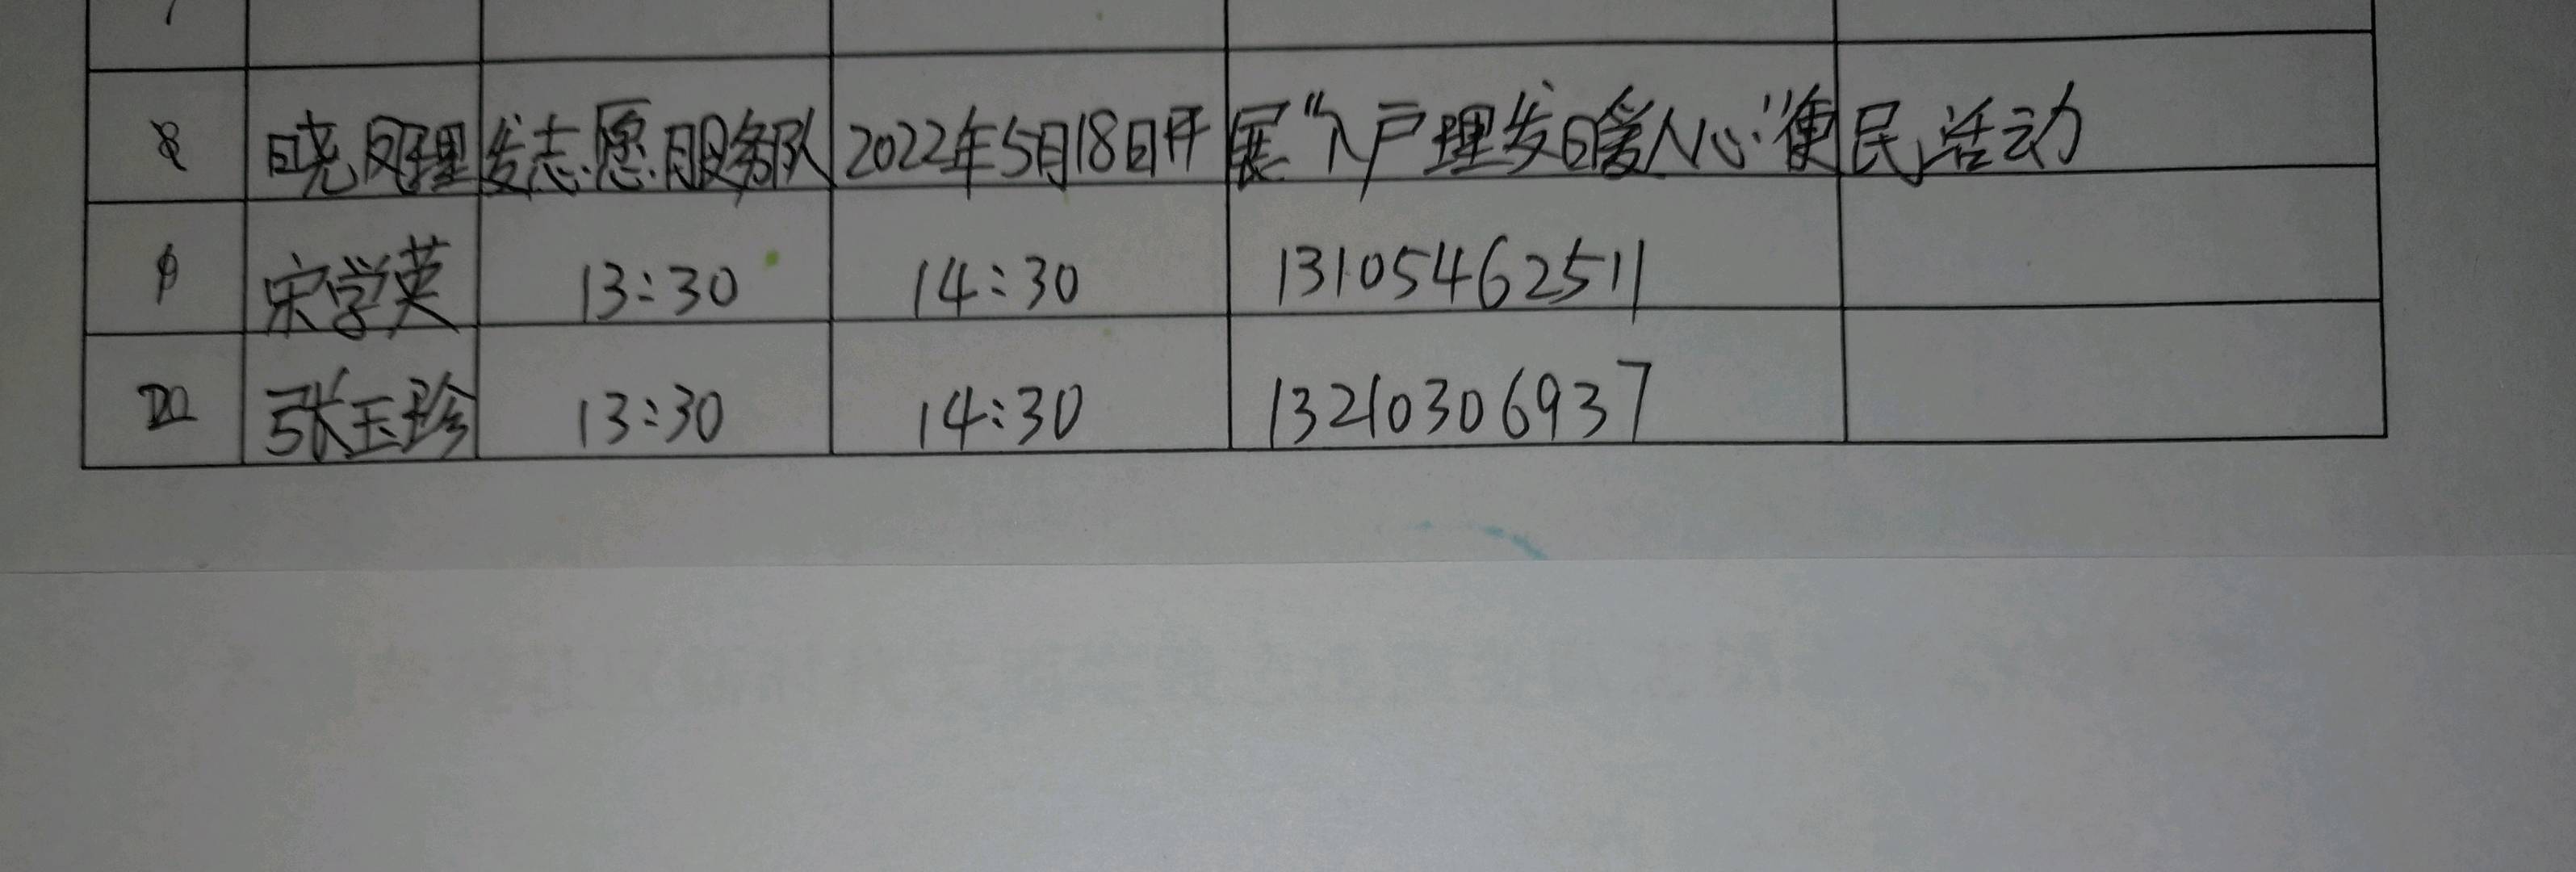 晓风理发志愿服务队2022年5月18日开展“入户理发暖人心”便民活动
宋学英 13:30 14:30 13105462511
张玉珍 13:30 14:30 13210306937